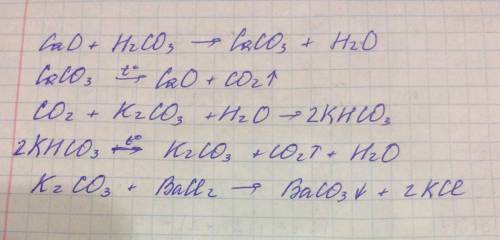 CaO + H₂CO₃ → CaCO₃ + H₂O
CaCO₃ t°→ CaO + CO₂↑
CO₂ + K₂CO₃ + H₂O → 2KHCO₃
2KHCO₃ t°⇄ K₂CO₃ + CO₂↑ + H₂O
K₂CO₃ + BaCl₂ → BaCO₃↓ + 2KCl